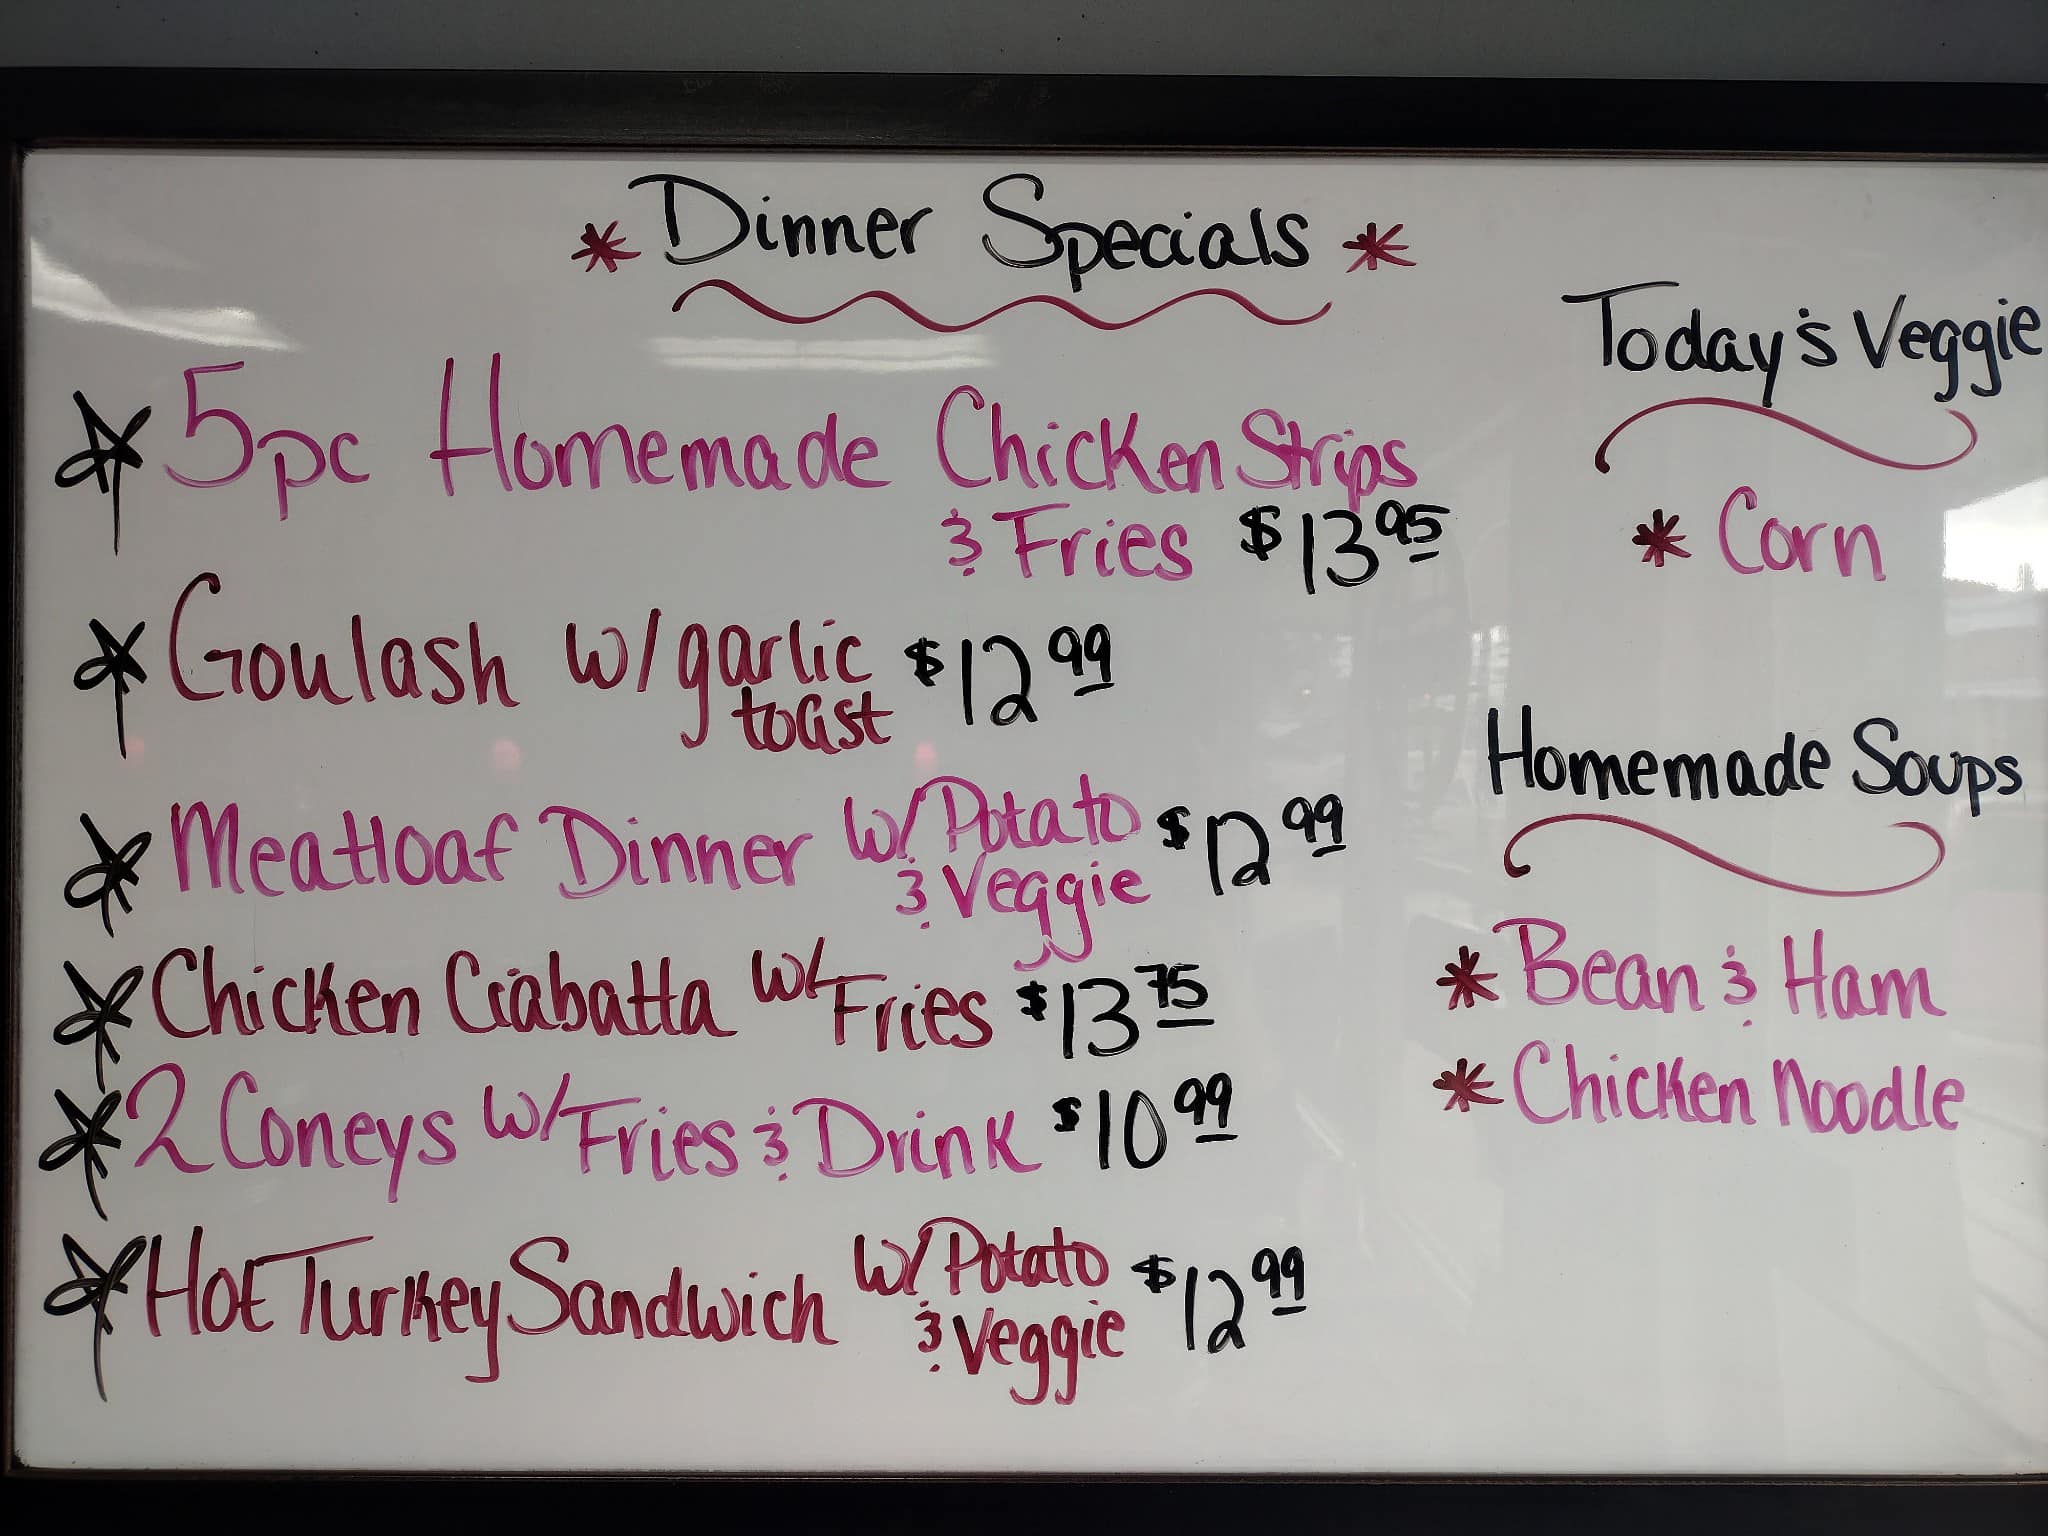 Dinner Specials
5pc Homemade Chicken Strips
& Fries $13.95
Goulash w/garlic
toast $12.99
Meatloaf Dinner w/Potato
& Veggie $12.99
Chicken Ciabatta w/Fries $13.75
2 Coneys w/Fries & Drink $10.99
Hot Turkey Sandwich w/Potato
& Veggie $12.99
Today's Veggie
* Corn
Homemade Soups
* Bean & Ham
* Chicken Noodle